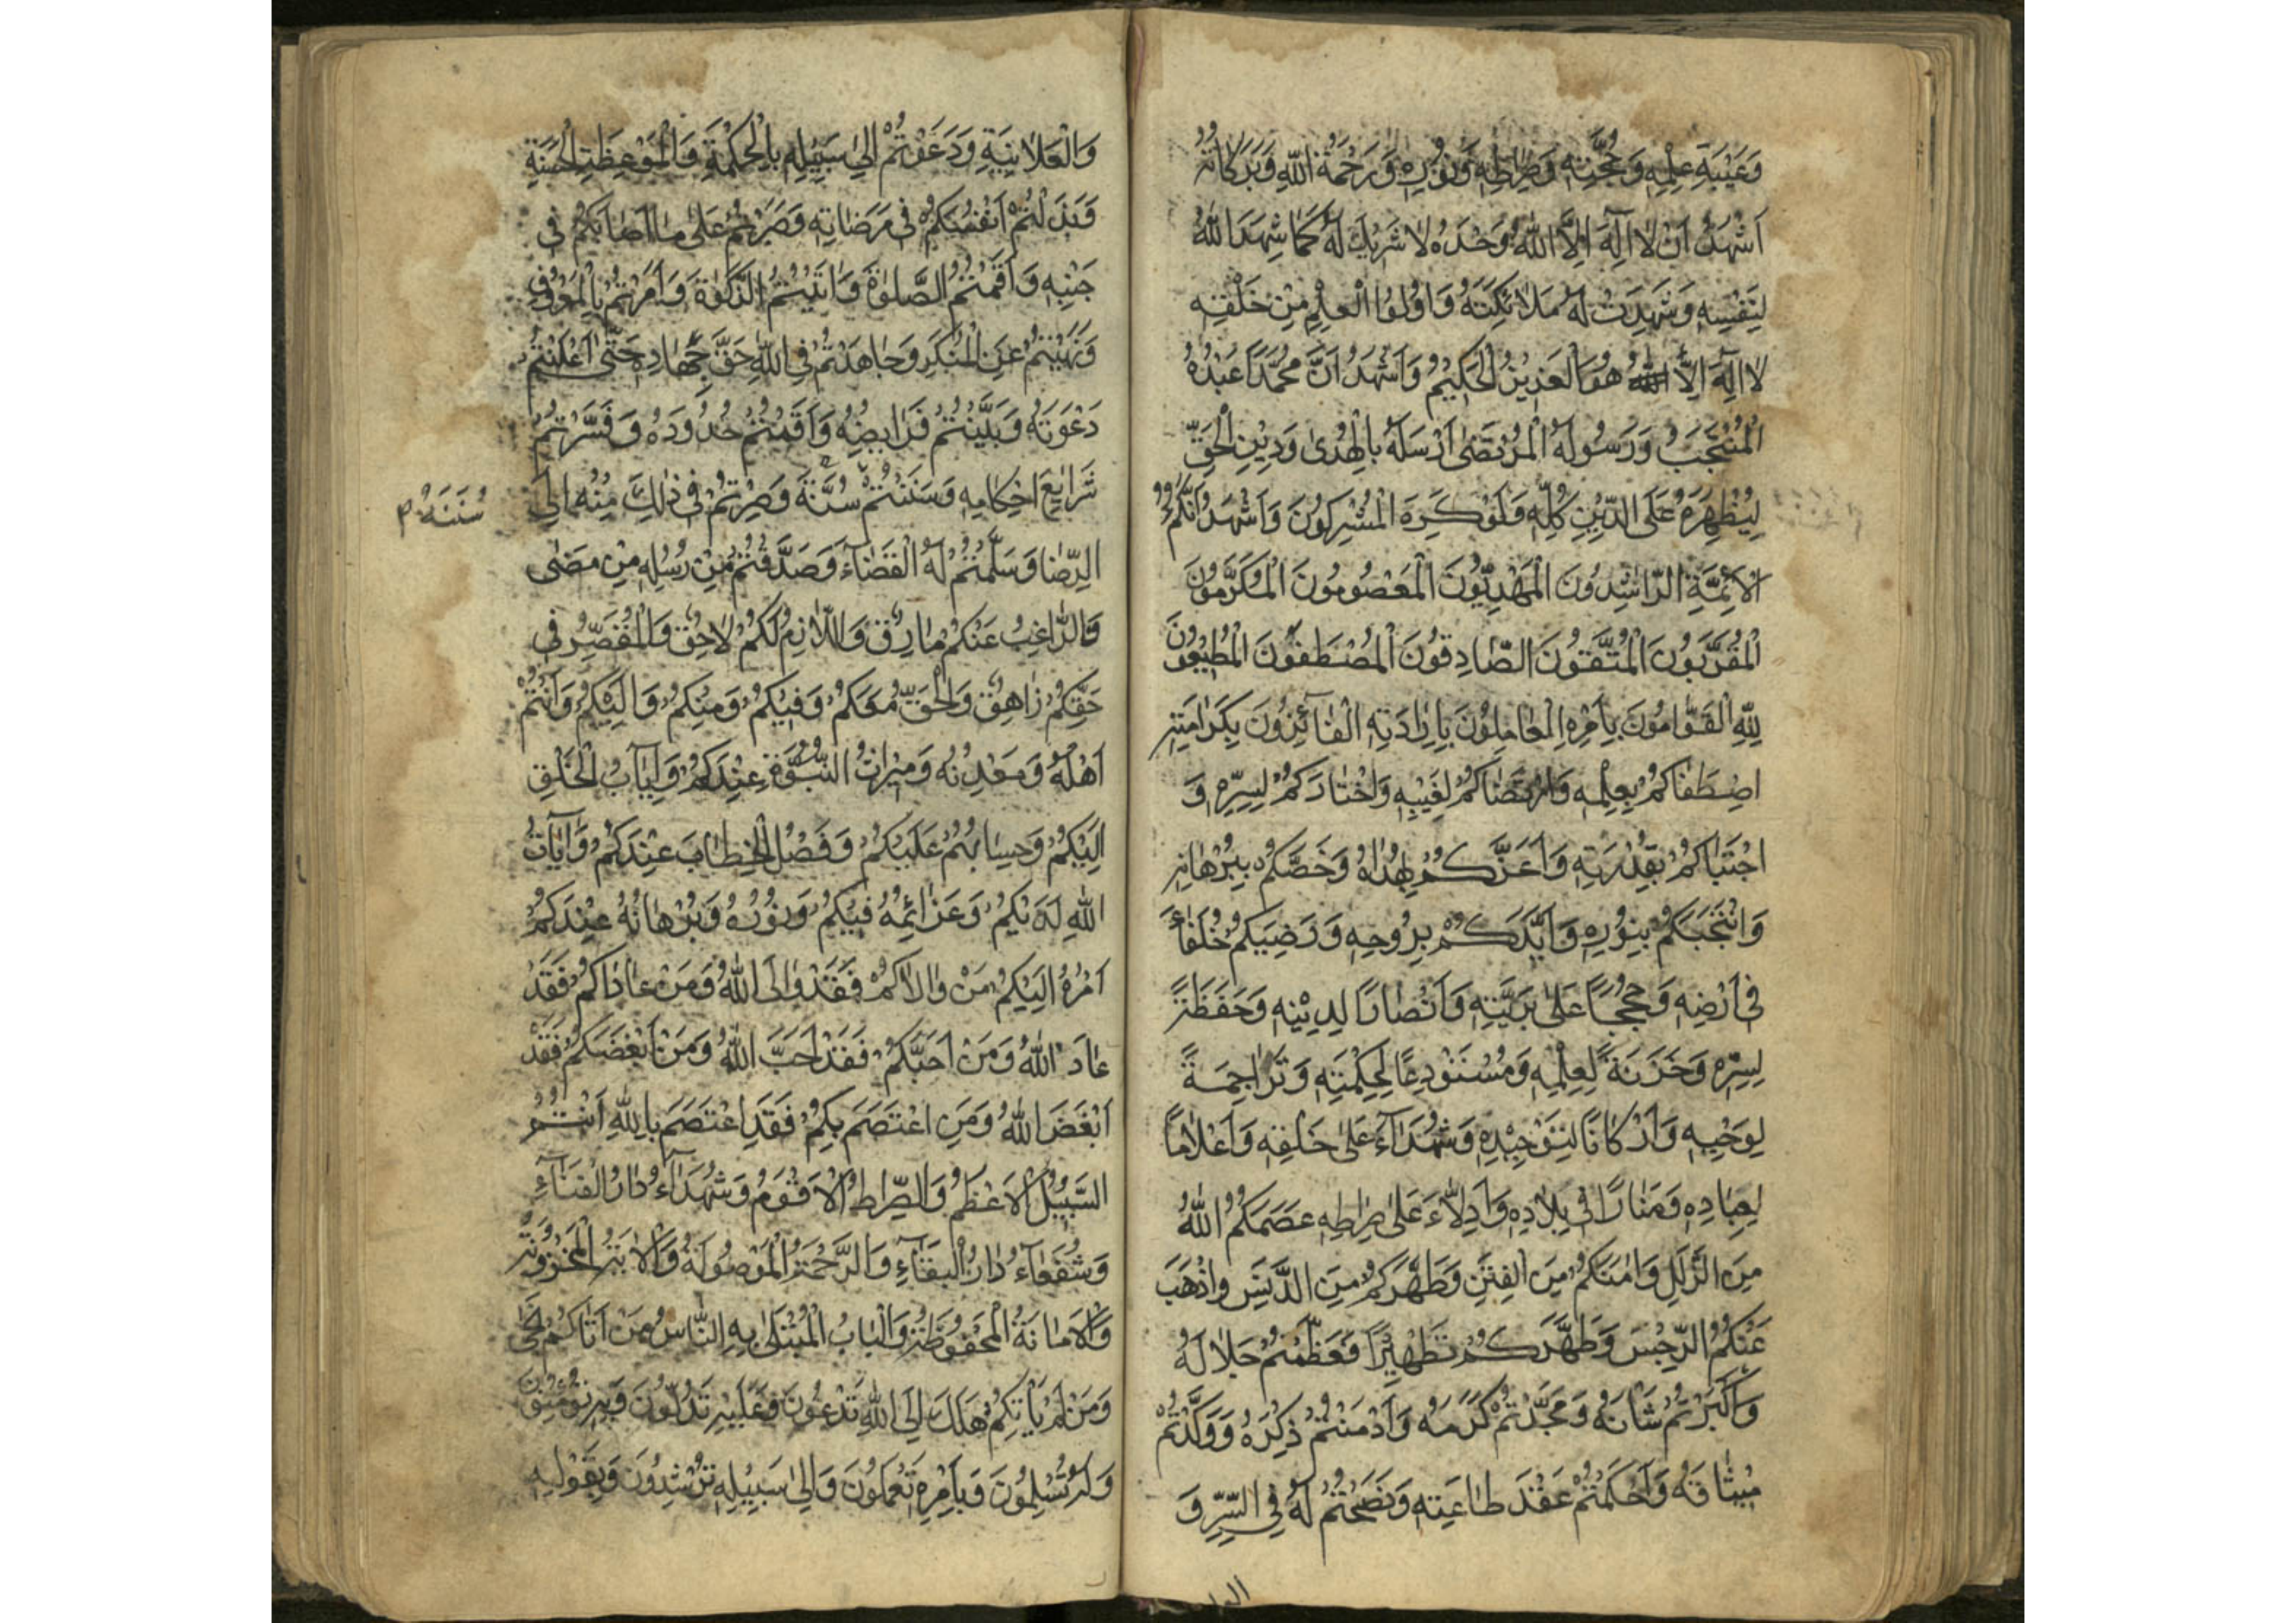 وَعَيْبَةِ عِلْمِهِ وَحُجَّتِهِ وَصِرَاطِهِ وَنُورِهِ وَرَحْمَةُ اللّٰهِ وَبَرَكَاتُهُ
اَشْهَدُ اَنْ لَا اِلٰهَ اِلَّا اللّٰهُ وَحْدَهُ لَا شَرِيْكَ لَهُ كَمَا شَهِدَ اللّٰهُ
لِنَفْسِهِ وَشَهِدَتْ لَهُ مَلَائِكَتُهُ وَاُولُوا الْعِلْمِ مِنْ خَلْقِهِ
لَا اِلٰهَ اِلَّا هُوَ الْعَزِيْزُ الْحَكِيْمُ وَاَشْهَدُ اَنَّ مُحَمَّدًا عَبْدُهُ
الْمُنْتَجَبُ وَرَسُولُهُ الْمُرْتَضٰى اَرْسَلَهُ بِالْهُدٰى وَدِيْنِ الْحَقِّ
لِيُظْهِرَهُ عَلَى الدِّيْنِ كُلِّهِ وَلَوْ كَرِهَ الْمُشْرِكُونَ وَاَشْهَدُ اَنَّكُمُ
الْاَئِمَّةِ الرَّاشِدُونَ الْمَهْدِيُّونَ الْمَعْصُومُونَ الْمُكَرَّمُونَ
الْمُقَرَّبُونَ الْمُتَّقُونَ الصَّادِقُونَ الْمُصْطَفَوْنَ الْمُطِيْعُونَ
لِلّٰهِ الْقَوَّامُونَ بِاَمْرِهِ الْعَامِلُونَ بِاِرَادَتِهِ الْفَائِزُونَ بِكَرَامَتِهِ
اصْطَفَاكُمْ بِعِلْمِهِ وَارْتَضَاكُمْ لِغَيْبِهِ وَاخْتَارَكُمْ لِسِرِّهِ وَ
اجْتَبَاكُمْ بِقُدْرَتِهِ وَاَعَزَّكُمْ بِهُدَاهُ وَخَصَّكُمْ بِبُرْهَانِهِ
وَانْتَجَبَكُمْ بِنُورِهِ وَاَيَّدَكُمْ بِرُوحِهِ وَرَضِيَكُمْ خُلَفَاءَ
فِى اَرْضِهِ وَحُجَجًا عَلٰى بَرِيَّتِهِ وَاَنْصَارًا لِدِيْنِهِ وَحَفَظَةً
لِسِرِّهِ وَخَزَنَةً لِعِلْمِهِ وَمُسْتَوْدِعًا لِحِكْمَتِهِ وَتَرَاجِمَةً
لِوَحْيِهِ وَاَرْكَانًا لِتَوْحِيْدِهِ وَشُهَدَآءَ عَلٰى خَلْقِهِ وَاَعْلَامًا
لِعِبَادِهِ وَمَنَارًا فِى بِلَادِهِ وَاَدِلَّاءَ عَلٰى صِرَاطِهِ عَصَمَكُمُ اللّٰهُ
مِنَ الزَّلَلِ وَاٰمَنَكُمْ مِنَ الْفِتَنِ وَطَهَّرَكُمْ مِنَ الدَّنَسِ وَاَذْهَبَ
عَنْكُمُ الرِّجْسَ وَطَهَّرَكُمْ تَطْهِيْرًا فَعَظَّمْتُمْ جَلَالَهُ
وَاَكْبَرْتُمْ شَاْنَهُ وَمَجَّدْتُمْ كَرَمَهُ وَاَدْمَنْتُمْ ذِكْرَهُ وَوَكَّدْتُمْ
مِيْثَاقَهُ وَاَحْكَمْتُمْ عَقْدَ طَاعَتِهِ وَنَصَحْتُمْ لَهُ فِى السِّرِّ وَ
وَالْعَلَانِيَةِ وَدَعَوْتُمْ اِلٰى سَبِيْلِهِ بِالْحِكْمَةِ وَالْمَوْعِظَةِ الْحَسَنَةِ
وَبَذَلْتُمْ اَنْفُسَكُمْ فِى مَرْضَاتِهِ وَصَبَرْتُمْ عَلٰى مَا اَصَابَكُمْ فِى
جَنْبِهِ وَاَقَمْتُمُ الصَّلٰوةَ وَاٰتَيْتُمُ الزَّكٰوةَ وَاَمَرْتُمْ بِالْمَعْرُوفِ
وَنَهَيْتُمْ عَنِ الْمُنْكَرِ وَجَاهَدْتُمْ فِى اللّٰهِ حَقَّ جِهَادِهِ حَتّٰى اَعْلَنْتُمْ
دَعْوَتَهُ وَبَيَّنْتُمْ فَرَايِضَهُ وَاَقَمْتُمْ حُدُودَهُ وَفَسَّرْتُمْ
شَرَايِعَ اَحْكَامِهِ وَسَنَنْتُمْ سُنَّةَ وَصِرْتُمْ فِى ذٰلِكَ مِنْهُ اِلَى
سُنَنَهُ
الرِّضَا وَسَلَّمْتُمْ لَهُ الْقَضَاءَ وَصَدَّقْتُمْ مِنْ رُسُلِهِ مِنْ مَضٰى
وَالرَّاغِبُ عَنْكُمْ مَارِقٌ وَاللَّازِمُ لَكُمْ لَاحِقٌ وَالْمُقَصِّرُ فِى
حَقِّكُمْ زَاهِقٌ وَالْحَقُّ مَعَكُمْ وَفِيْكُمْ وَمِنْكُمْ وَاِلَيْكُمْ وَاَنْتُمْ
اَهْلُهُ وَمَعْدِنُهُ وَمِيْرَاثُ النُّبُوَّةِ عِنْدَكُمْ وَاِيَابُ الْخَلْقِ
اِلَيْكُمْ وَحِسَابُهُمْ عَلَيْكُمْ وَفَصْلُ الْخِطَابِ عِنْدَكُمْ وَاٰيَاتُ
اللّٰهِ لَدَيْكُمْ وَعَزَائِمُهُ فِيْكُمْ وَنُورُهُ وَبُرْهَانُهُ عِنْدَكُمْ
اَمْرُهُ اِلَيْكُمْ مَنْ وَالَاكُمْ فَقَدْ وَالَى اللّٰهُ وَمَنْ عَادَاكُمْ فَقَدْ
عَادَ اللّٰهُ وَمَنْ اَحَبَّكُمْ فَقَدْ اَحَبَّ اللّٰهُ وَمَنْ اَبْغَضَكُمْ فَقَدْ
اَبْغَضَ اللّٰهُ وَمَنِ اعْتَصَمَ بِكُمْ فَقَدِ اعْتَصَمَ بِاللّٰهِ اَنْتُمُ
السَّبِيْلُ الْاَعْظَمُ وَالصِّرَاطُ الْاَقْوَمُ وَشُهَدَآءُ دَارُ الْفَنَآءِ
وَشُفَعَآءُ دَارُ الْبَقَآءِ وَالرَّحْمَةُ الْمَوْصُولَةُ وَالْاٰيَةُ الْمَخْزُونَةُ
وَالْاَمَانَةُ الْمَحْفُوظَةُ وَالْبَابُ الْمُبْتَلٰى بِهِ النَّاسُ مَنْ اَتَاكُمْ نَجٰى
وَمَنْ لَمْ يَاْتِكُمْ هَلَكَ اِلَى اللّٰهِ تَدْعُونَ وَعَلَيْهِ تَدُلُّونَ وَبِهِ تُؤْمِنُونَ
وَلَهُ تُسْلِمُونَ وَبِاَمْرِهِ تَعْمَلُونَ وَاِلٰى سَبِيْلِهِ تُرْشِدُونَ وَبِقَوْلِهِ